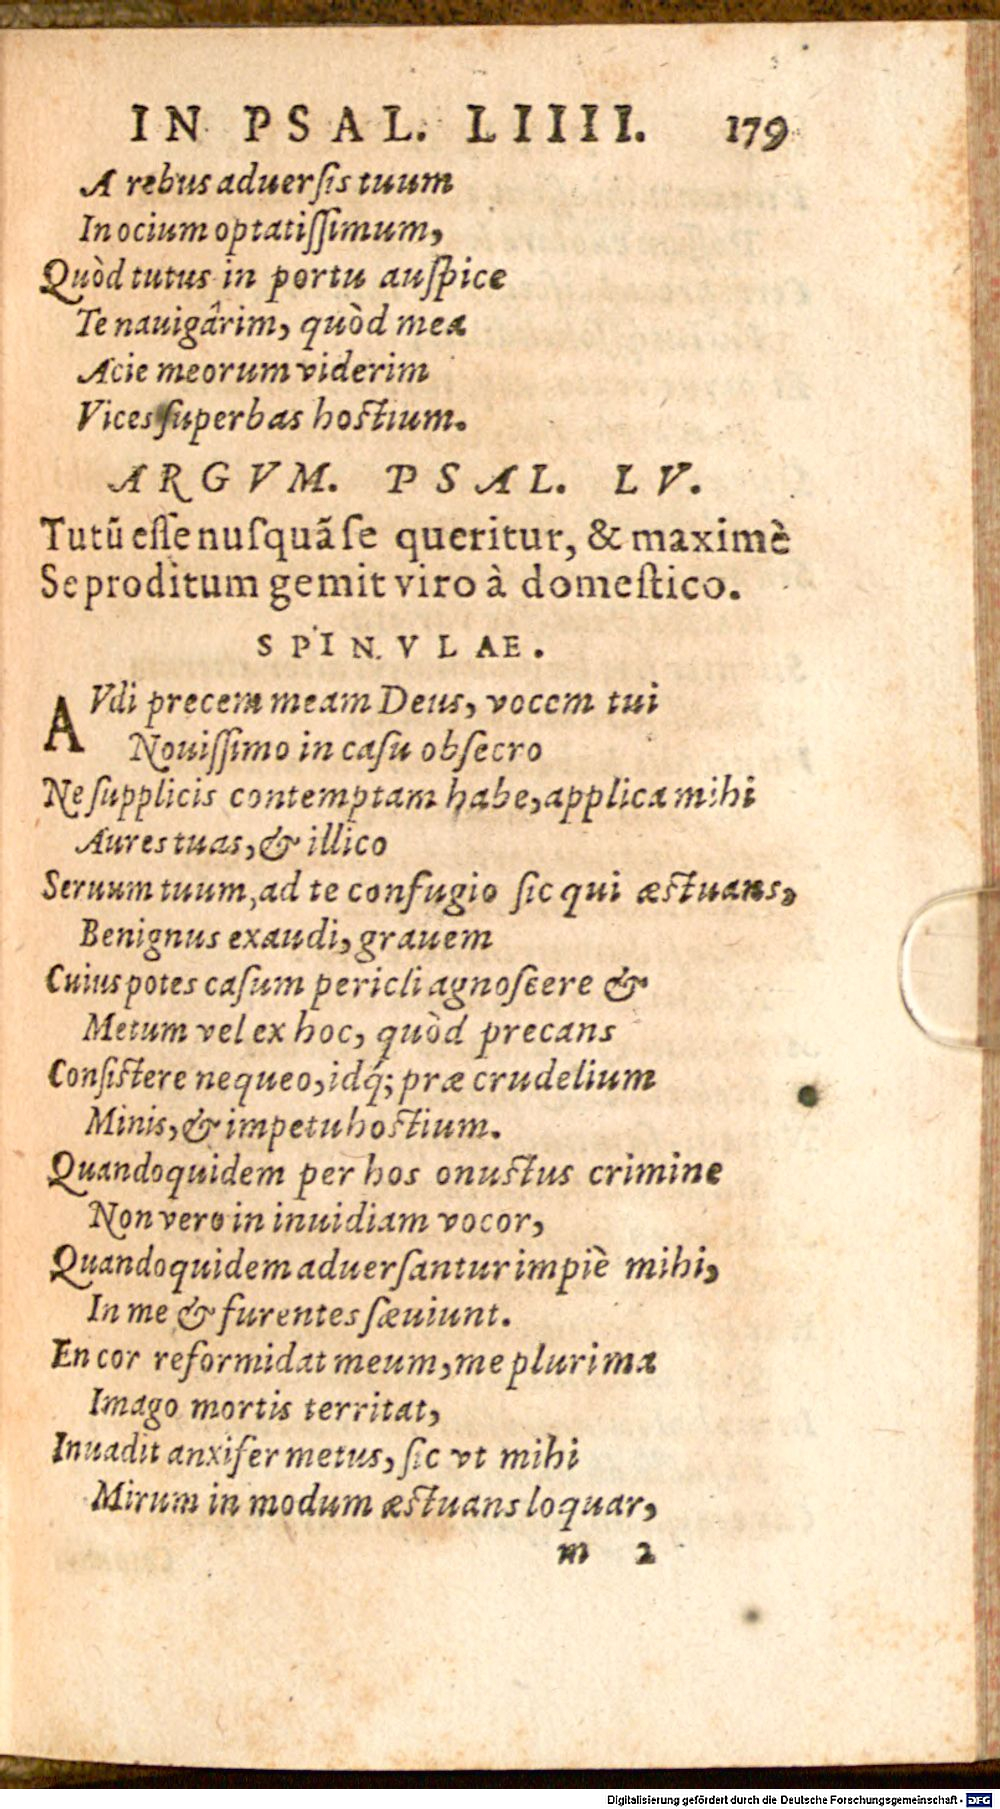 IN PSAL. LIIII. 179
A rebus aduersis tuum
In ocium optatissimum,
Quòd tutus in portu auspice
Te nauigârim, quòd mea
Acie meorum viderim
Vices superbas hostium.
ARGVM. PSAL. LV.
Tutũ esse nusquã se queritur, & maximè
Se proditum gemit viro à domestico.
SPINVLAE.
AVdi precem meam Deus, vocem tui
Nouissimo in casu obsecro
Ne supplicis contemptam habe, applica mihi
Aures tuas, & illico
Seruum tuum, ad te confugio sic qui æstuans,
Benignus exaudi, grauem
Cuius potes casum pericli agnoscere &
Metum vel ex hoc, quòd precans
Consistere nequeo, idq́; præ crudelium
Minis, & impetu hostium.
Quandoquidem per hos onustus crimine
Non vero in inuidiam vocor,
Quandoquidem aduersantur impiè mihi,
In me & furentes sæuiunt.
En cor reformidat meum, me plurima
Imago mortis territat,
Inuadit anxifer metus, sic vt mihi
Mirum in modum æstuans loquar,
m 2
Digitalisierung gefördert durch die Deutsche Forschungsgemeinschaft - DFG